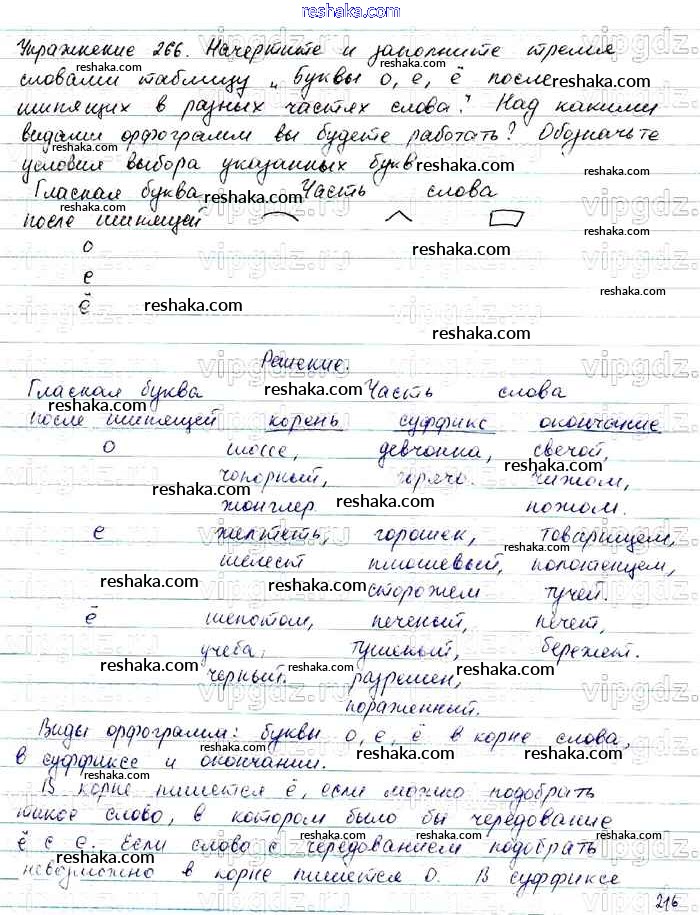 reshaka.com
Упражнение 266. Начертите и заполните тремя
словами таблицу „Буквы о, е, ё после
шипящих в разных частях слова". Над какими
видами орфограмм вы будете работать? Обозначьте
условия выбора указанных букв.
Гласная буква Часть слова
после шипящей
о
е
ё
Решение.
Гласная буква Часть слова
после шипящей корень суффикс окончание
о шоссе, девчонка, свечой,
чопорный, горячо. чижом,
жонглер ножом.
е желтеть, горошек, товарищем,
шелест плюшевый, полотенцем,
сторожем тучей.
ё шепотом, печеный, печет,
учеба, тушеный, бережет.
черный. разрешен,
пораженный.
Виды орфограмм: буквы о, е, ё в корне слова,
в суффиксе и окончании.
В корне пишется ё, если можно подобрать
такое слово, в котором было бы чередование
ё с е. Если слово с чередованием подобрать
невозможно в корне пишется О. В суффиксе
216